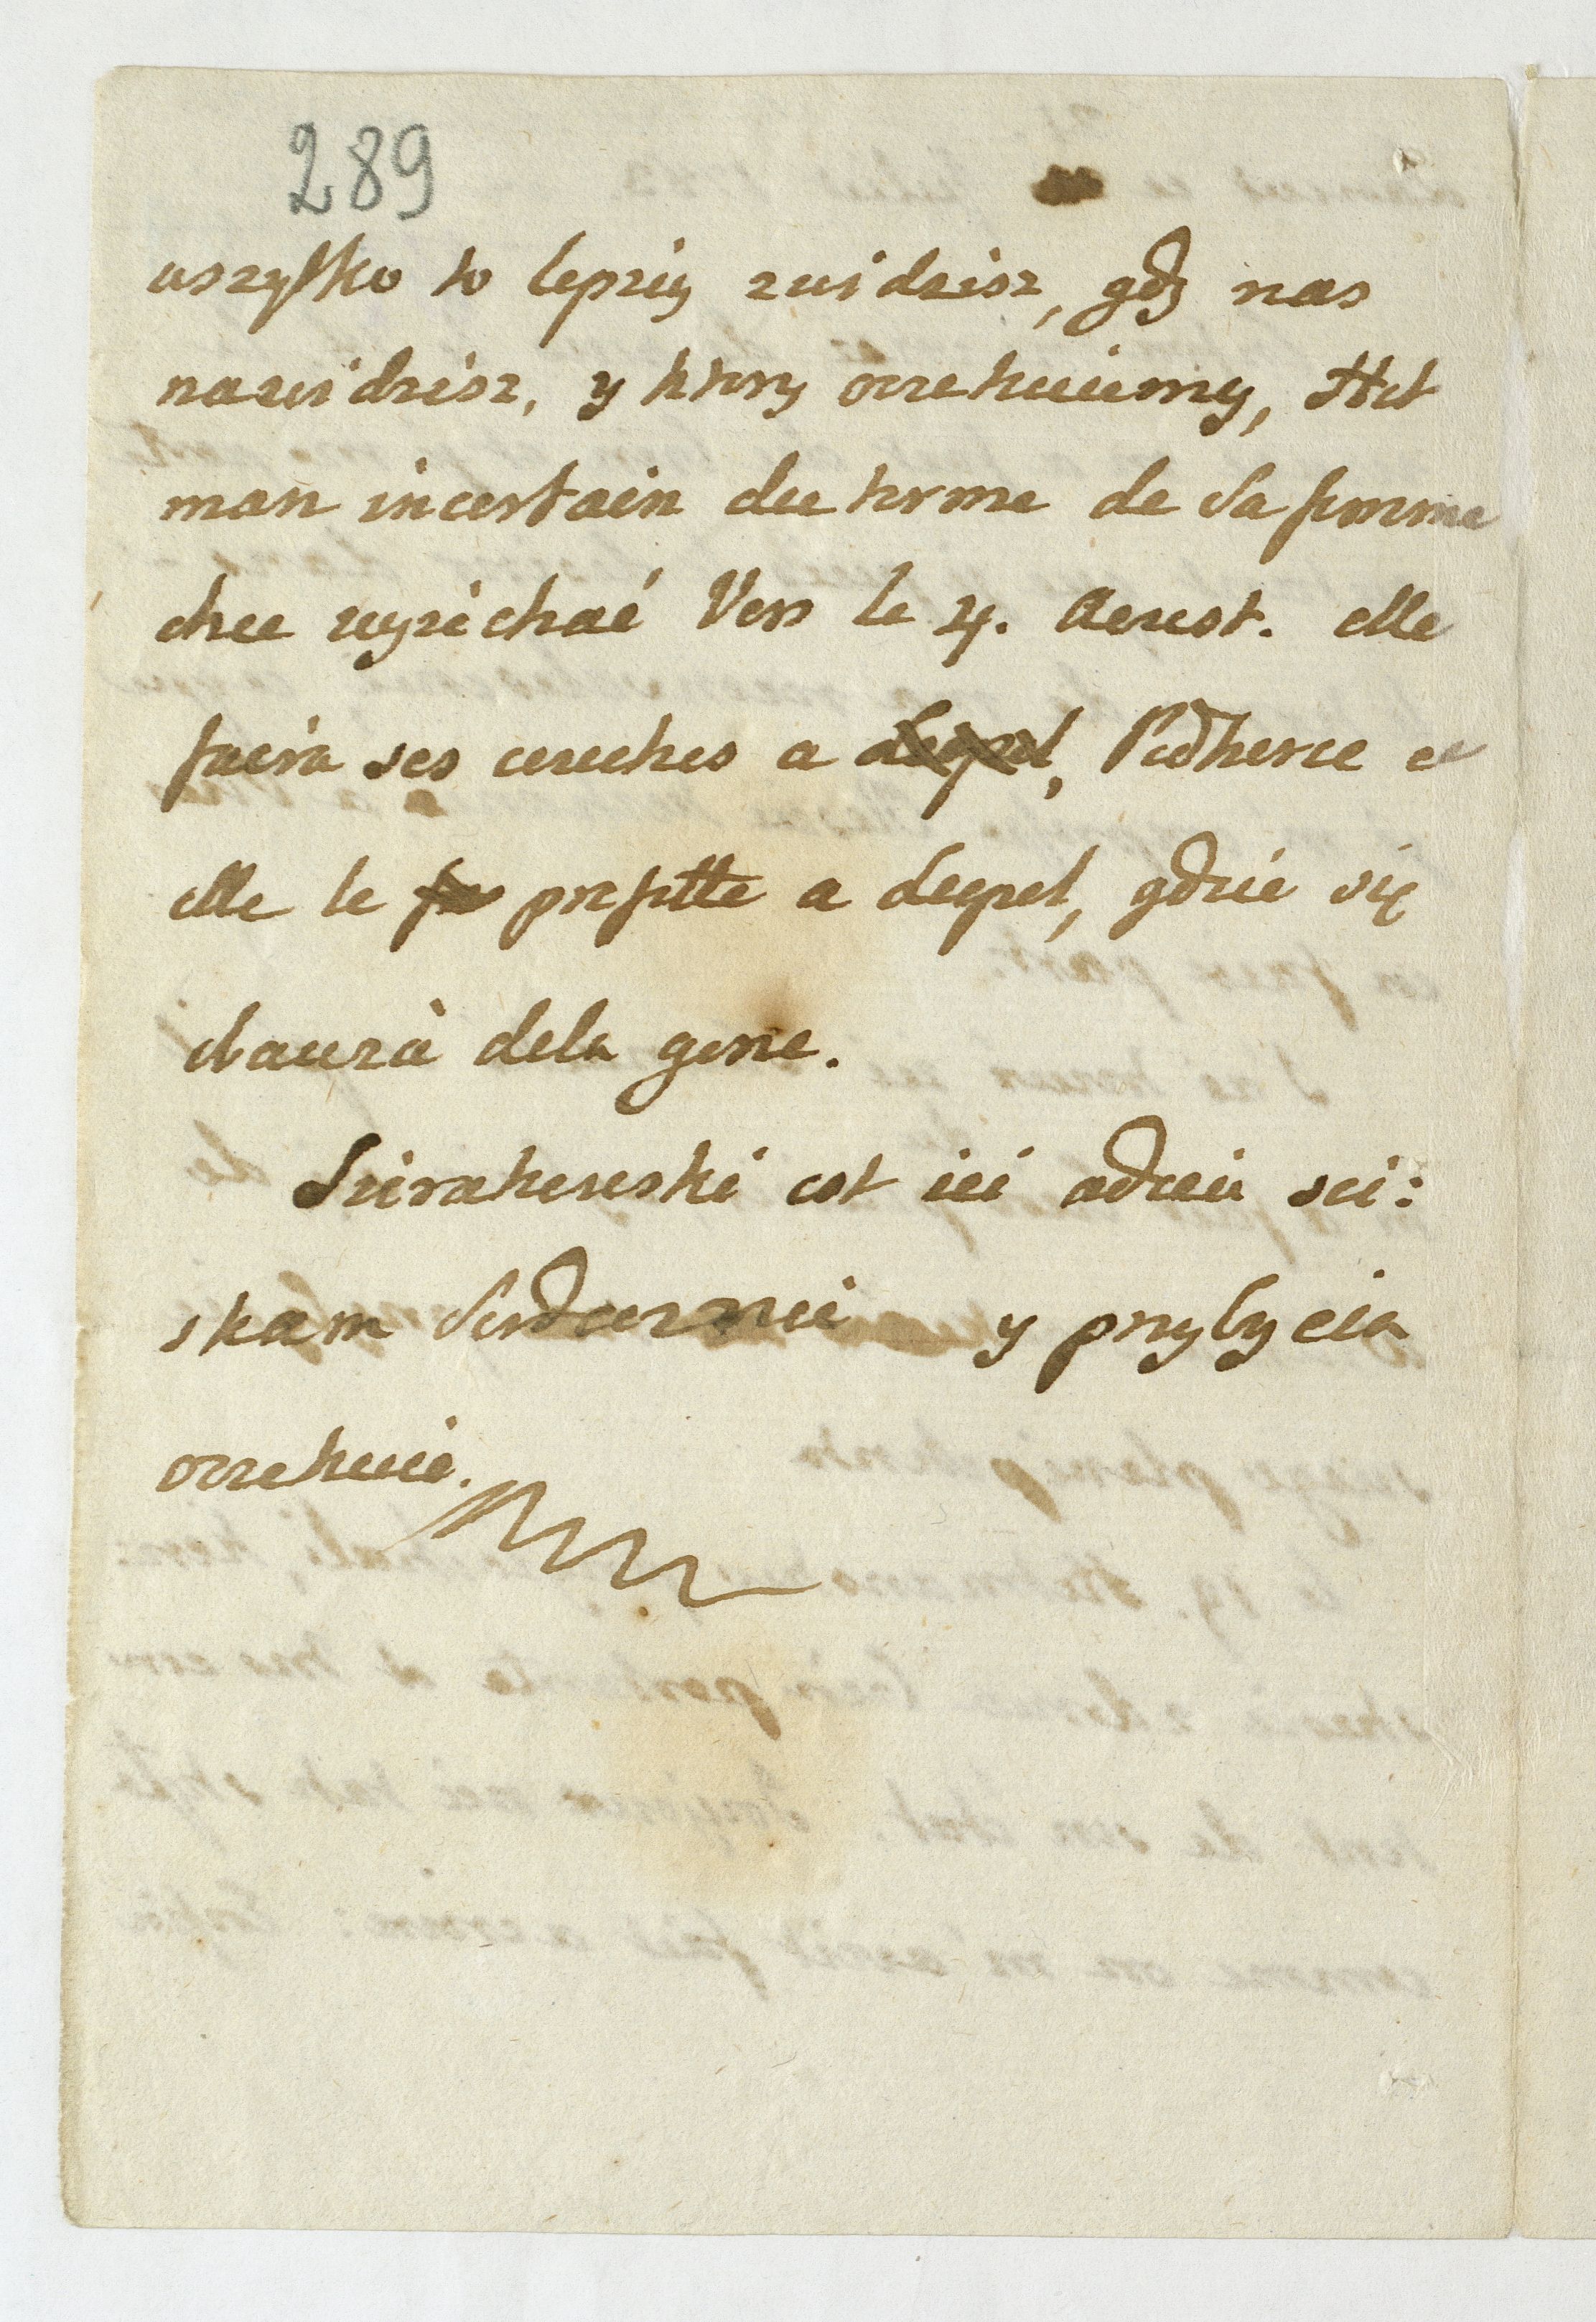 289
wszystko to lepziy zwidzisz, gdy nas
nawidzisz, y ktory oczekuiemy, Het
man incertain du terme de sa femme
chce wyiechać Vers le 4. Aoust. elle
faira ses couches a Podherce et
elle le prefette a Leopol, gdzie się
ebaurà dela gene.
Sierakowski est ici adieu sci:
skam serdecznie y przybycia
oczekuie.